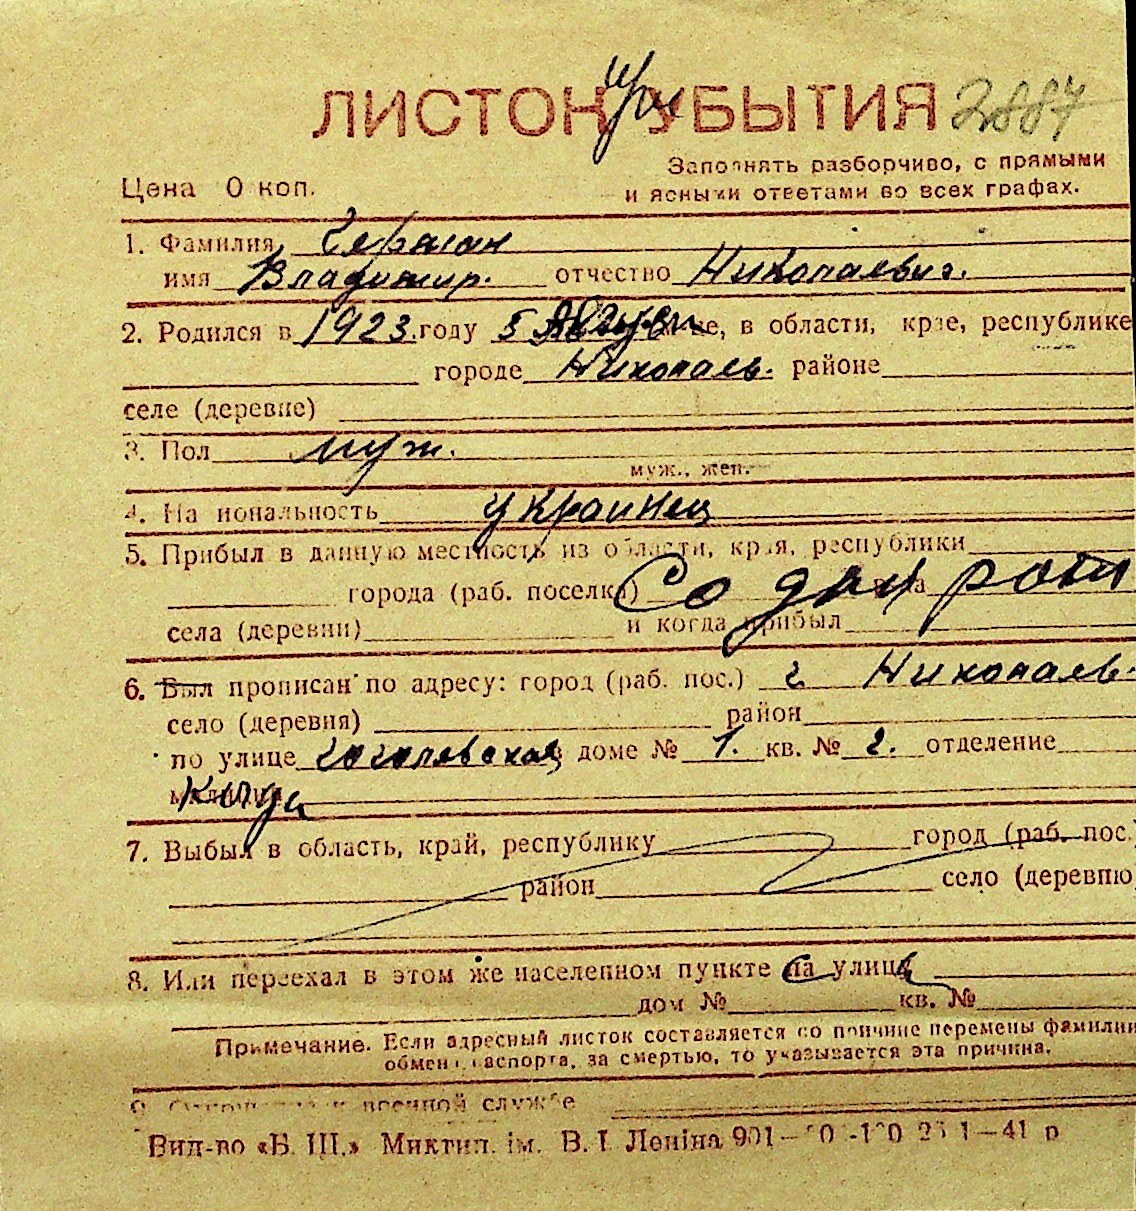 ЛИСТОК УБЫТИЯ 2887
при
Заполнять разборчиво, с прямыми
Цена 0 коп. и ясными ответами во всех графах.
1. Фамилия
имя Владимир. отчество Николаевич.
2. Родился в 1923. году 5 Августа, в области, крае, республике
городе Николаев. районе
селе (деревне)
3. Пол муж.
муж., жен.
4. Национальность украинец
5. Прибыл в данную местность из области, края, республики
города (раб. поселка) Со дня рож
села (деревни) и когда прибыл
6. Был прописан по адресу: город (раб. пос.) г Николаев.
село (деревня) район
по улице Гоголевская доме № 1. кв. № 2. отделение
милиции
куда
7. Выбыл в область, край, республику город (раб. пос.
район село (деревню
8. Или переехал в этом же населенном пункте на улицу
дом № кв. №
Примечание. Если адресный листок составляется по причине перемены фамилии
обмена паспорта, за смертью, то указывается эта причина.
9. военной службе
Вид-во «Б. Ш.» Микгип. ім. В. І. Леніна 901— 1—41 р